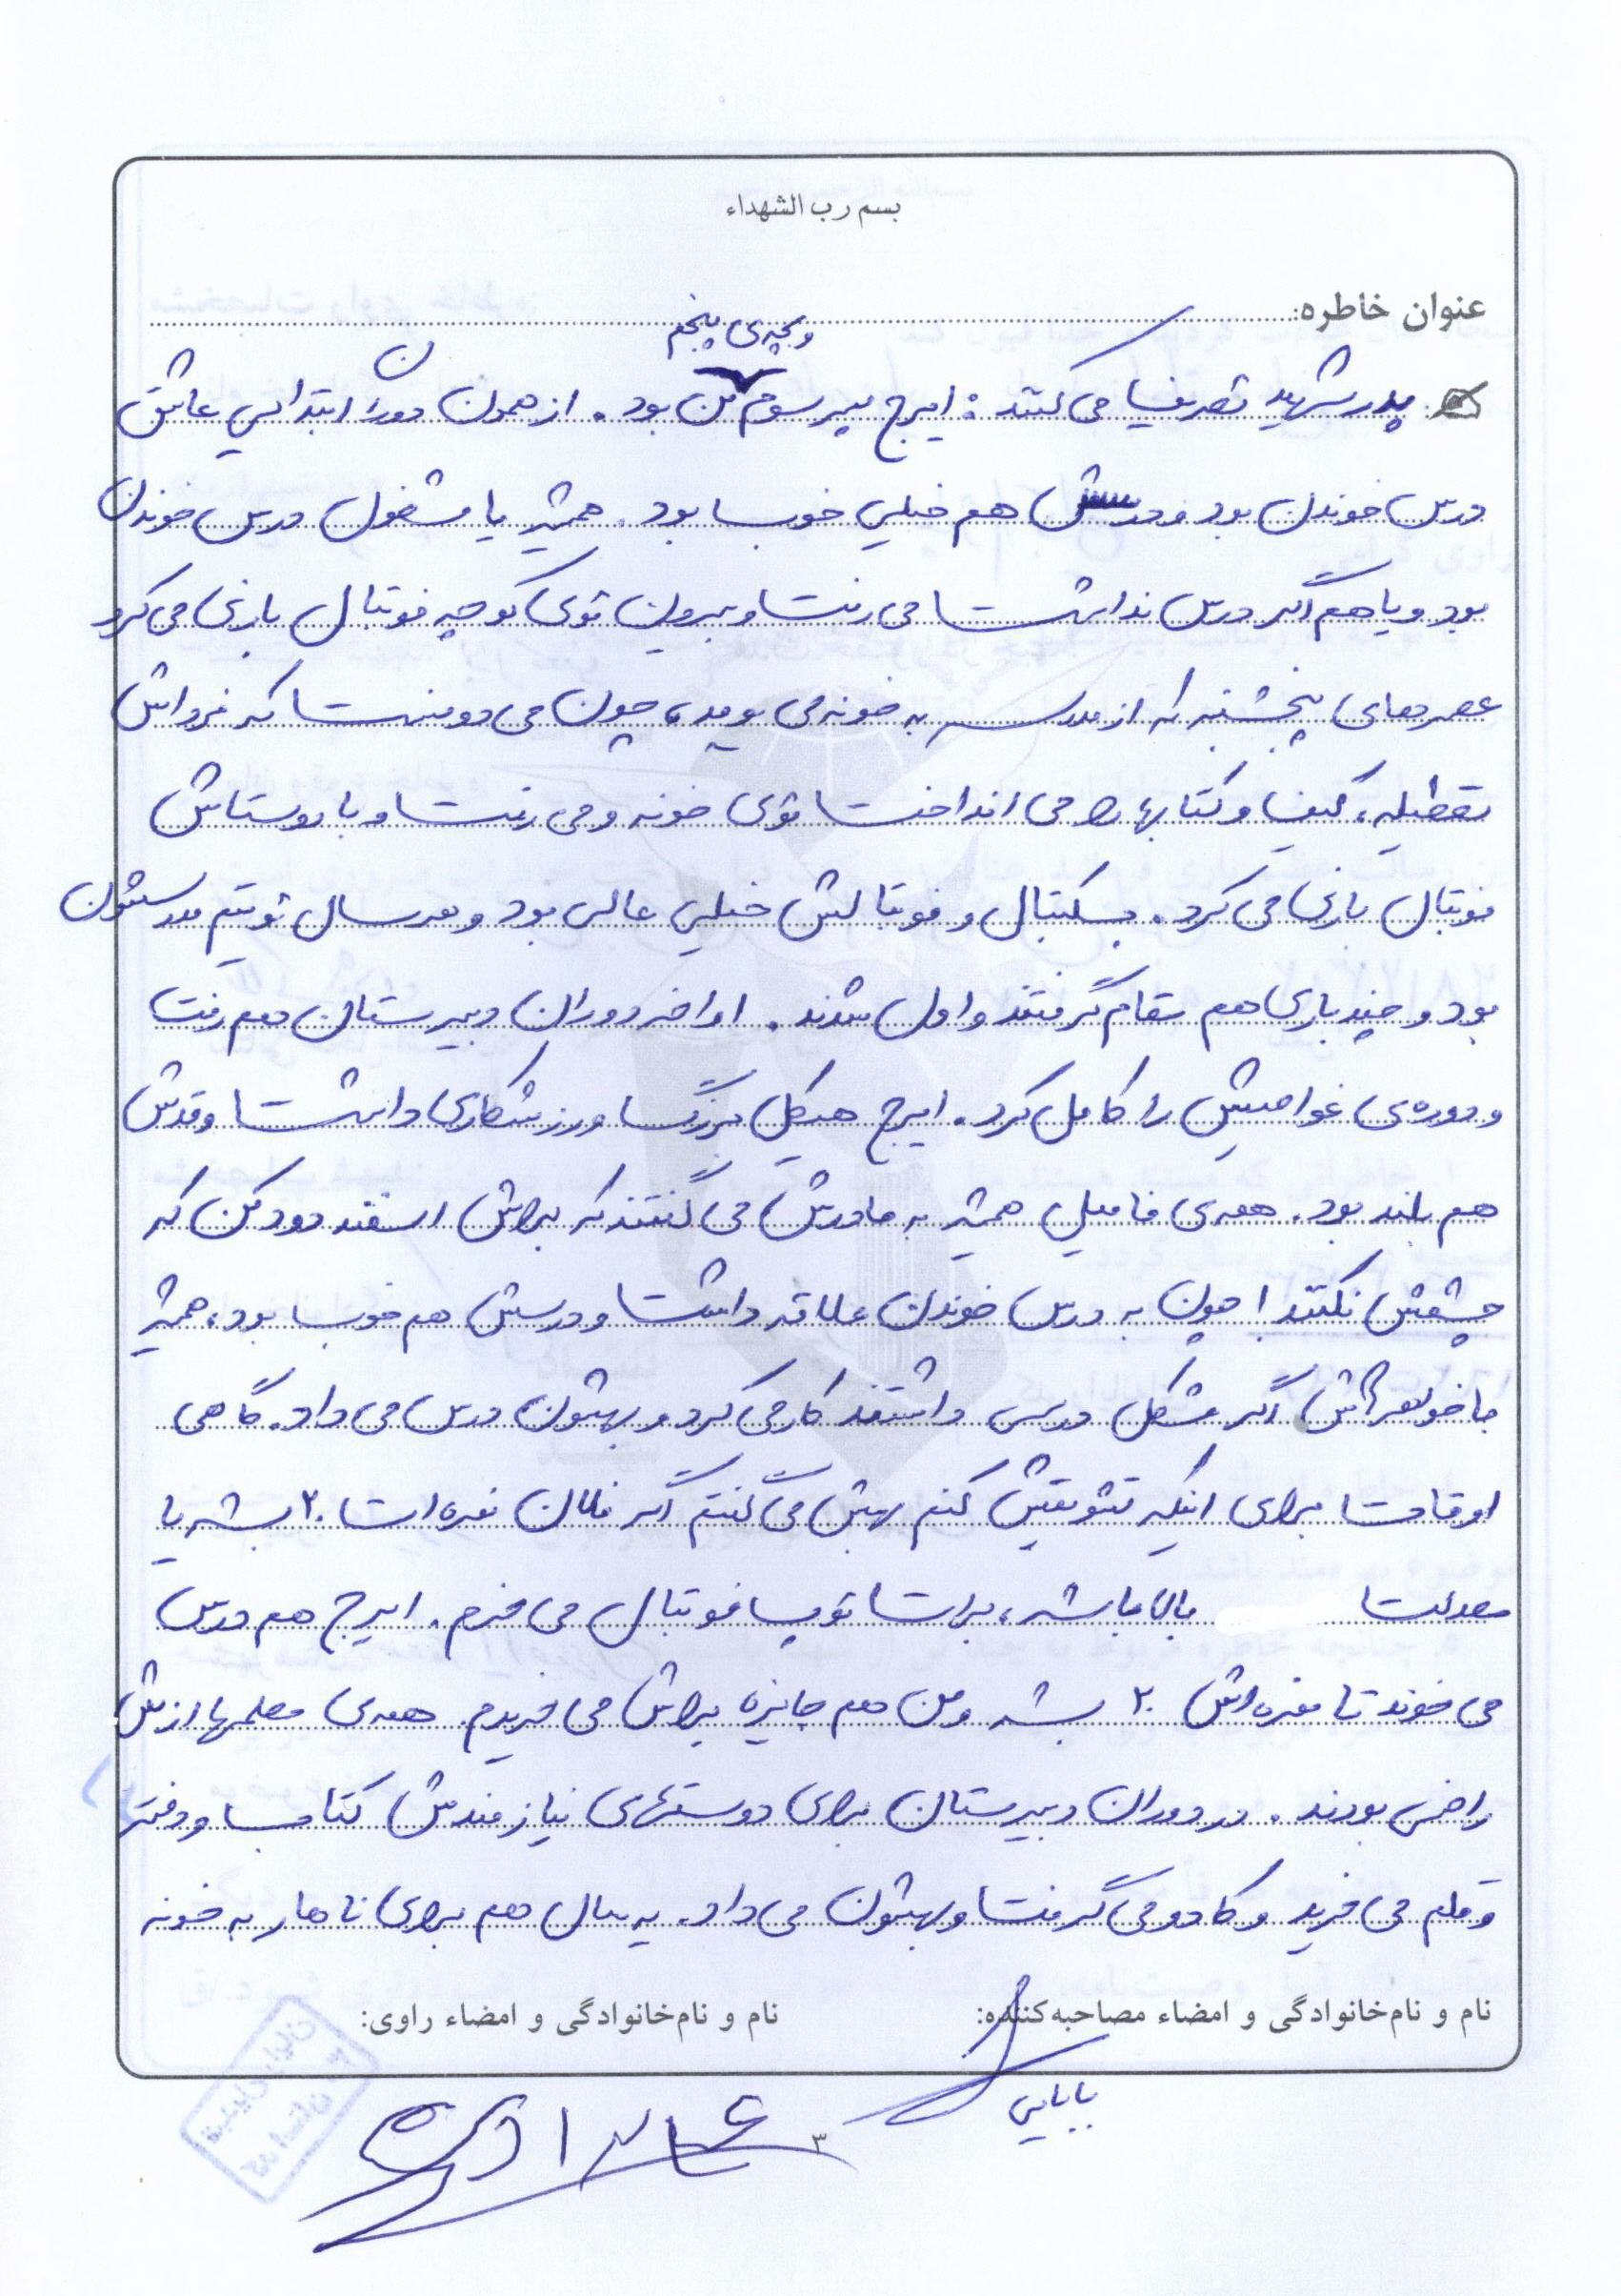 بسم رب الشهداء
عنوان خاطره:
و بچه‌ی پنجم
پدر شهید تعریف می‌کنند : ایرج پسر سوم من بود . از همون دوران ابتدایی عاشق
درس خوندن بود و درسش هم خیلی خوب بود . همیشه یا مشغول درس خوندن
بود و یا هم اگر درس نداشت می‌رفت و بیرون توی کوچه فوتبال بازی می‌کرد
عصرهای پنجشنبه که از مدرسه به خونه می‌یومد ، چون می‌دونست که فرداش
تعطیله ، کیف و کتابها را می‌انداخت توی خونه و می‌رفت و با دوستاش
فوتبال بازی می‌کرد . بسکتبال و فوتبالش خیلی عالی بود و هر سال تو تیم مدرسشون
بود و چند باری هم مقام گرفتند و اول شدند . اواخر دوران دبیرستان هم رفت
و دوره‌ی غواصیش را کامل کرد . ایرج هیکل بزرگ و ورزشکاری داشت و قدش
هم بلند بود . همه‌ی فامیل همیشه به مادرش می‌گفتند که براش اسفند دود کن که
چشمش نکنند ! چون به درس خوندن علاقه داشت و درسش هم خوب بود ، همیشه
با خواهراش اگر مشکل درسی داشتند کار می‌کرد و بهشون درس می‌داد . گاهی
اوقات برای اینکه تشویقش کنم بهش می‌گفتم اگر فلان نمره‌ات ۲۰ بشه یا
معدلت بالا باشه ، برات توپ فوتبال می‌خرم . ایرج هم درس
می‌خوند تا نمره‌اش ۲۰ بشه و من هم جایزه براش می‌خریدم . همه‌ی معلمها ازش
راضی بودند . در دوران دبیرستان برای دوستهای نیازمندش کتاب و دفتر
و قلم می‌خرید و کادو می‌گرفت و بهشون می‌داد . یه سال هم برای ناهار به خونه
نام و نام‌خانوادگی و امضاء مصاحبه‌کننده:
نام و نام‌خانوادگی و امضاء راوی:
بابایی
۳